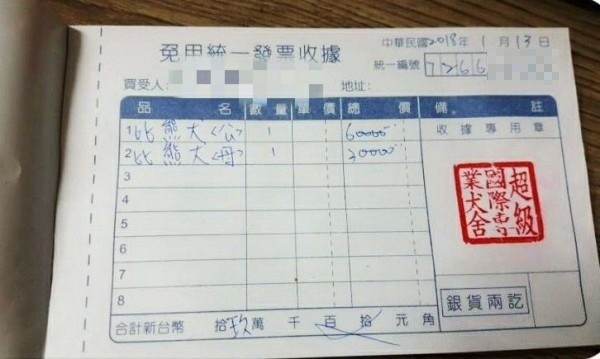 免用統一發票收據
中華民國2018年1月13日
統一編號 7266
買受人： 地址：
品名 數量 單價 總價 備註
1 比熊犬(公) 1 60000
收據專用章
2 比熊犬(母) 1 30000
3
4
5
6
7
8
超級
國際專
業犬舍
銀貨兩訖
合計新台幣 拾玖萬 千 百 拾 元 角